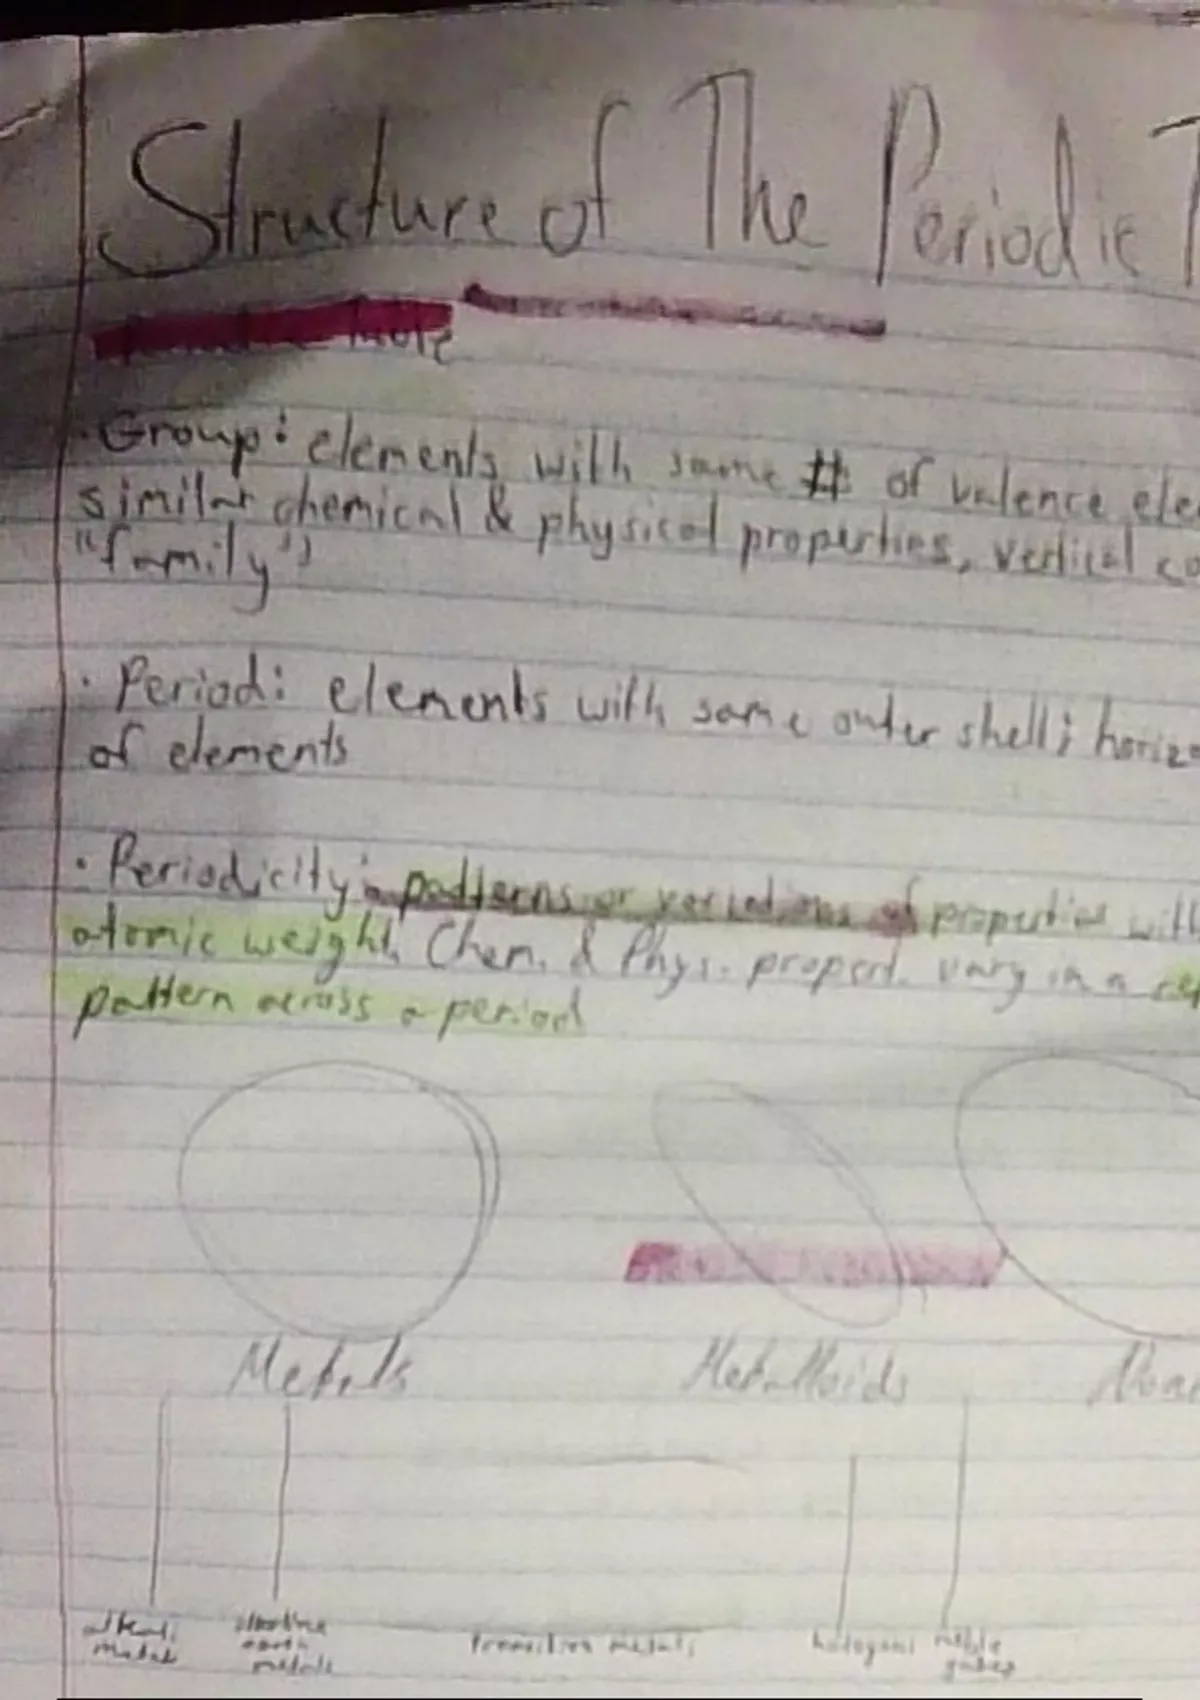 Structure of The Periodic T
more
· Group: elements with same # of valence ele
similar chemical & physical properties, vertical co
"family"
· Period: elements with same outer shell; horizo
of elements
· Periodicity: patterns or variations of properties with
atomic weight. Chem. & Phys. propert. vary in a
pattern across a period
Metals Metalloids
alkali alkaline transition metals halogens noble
metals earth gases
metals